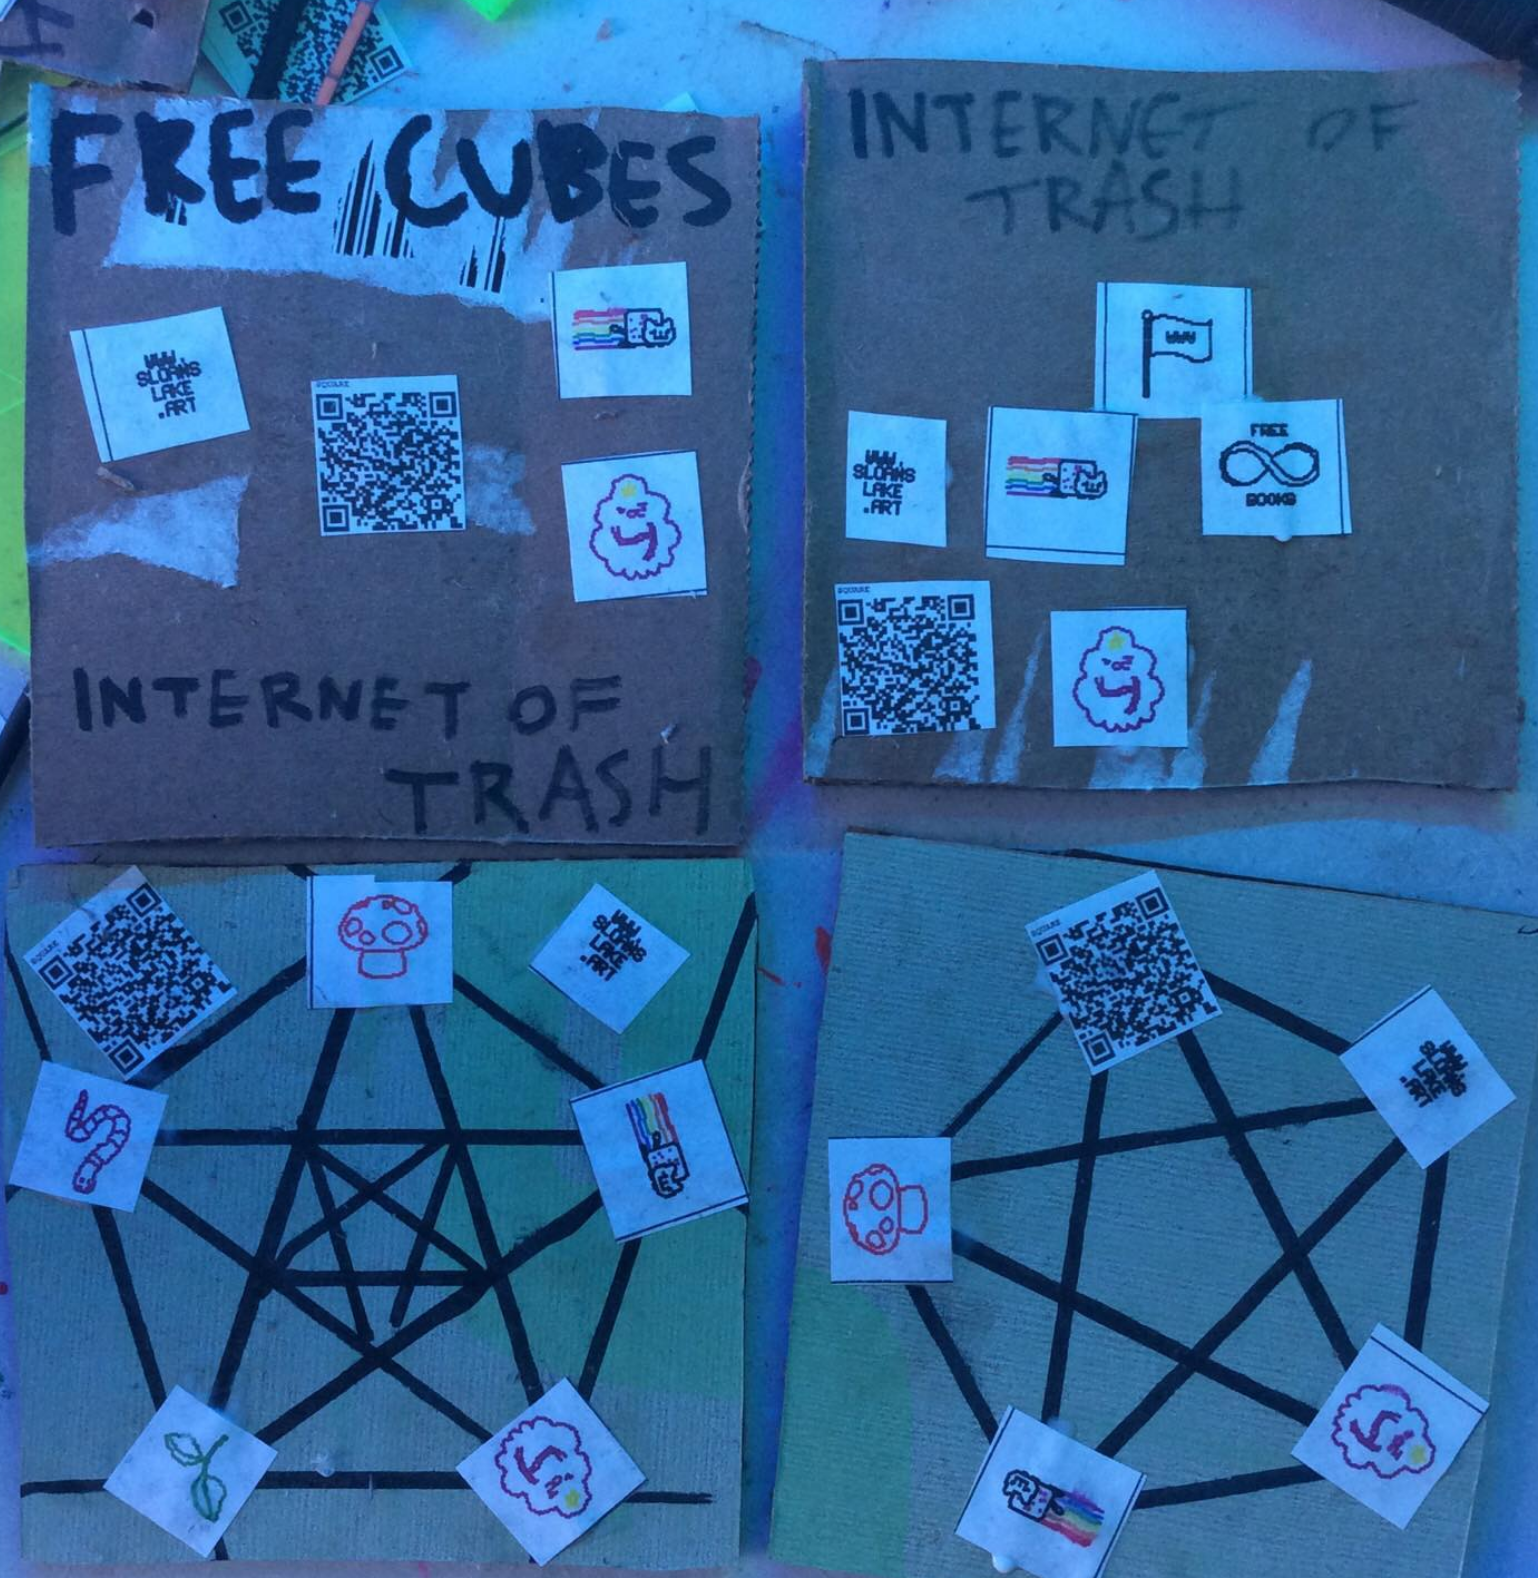 FREE CUBES
WWW.
SLOANS
LAKE
.ART
SQUARE
INTERNET OF
TRASH
INTERNET OF
TRASH
WWW
WWW.
SLOANS
LAKE
.ART
FREE
BOOKS
SQUARE
SQUARE
WWW.
SLOANS
LAKE
.ART
SQUARE
WWW.
SLOANS
LAKE
.ART